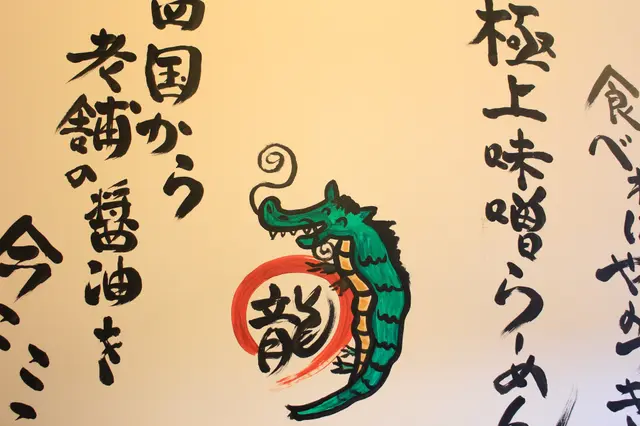 食べれば
極上味噌らーめん
龍
四国から
老舗の醤油を
今ここ